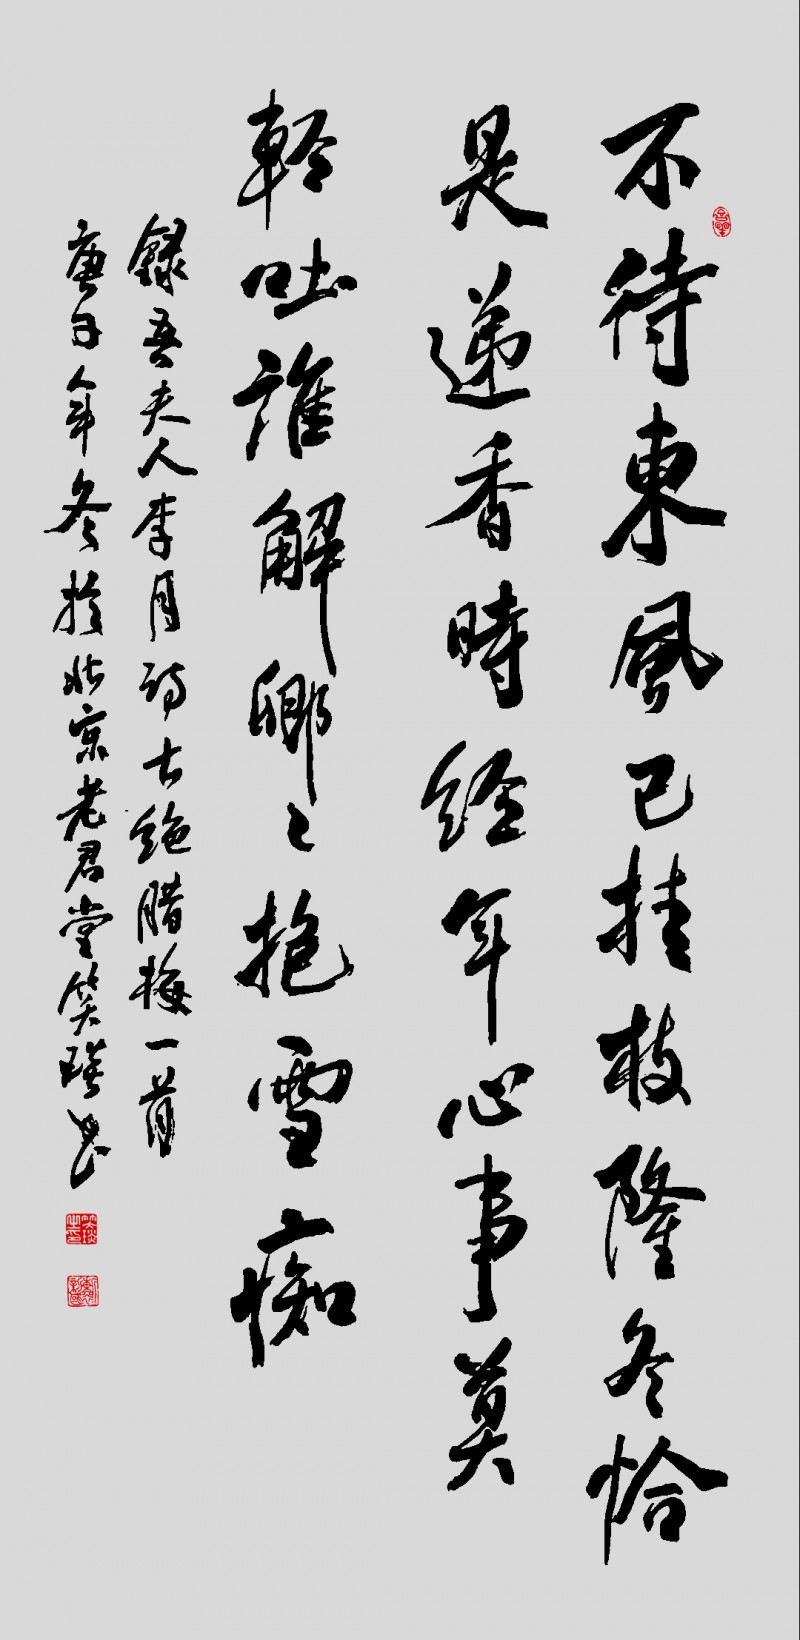 不待東風已挂枝隆冬恰
是递香時经年心事莫
輕吐誰解卿〻抱雪痴
錄吾夫人李月詩七绝腊梅一首
庚子年冬於北京老君堂笑琰书